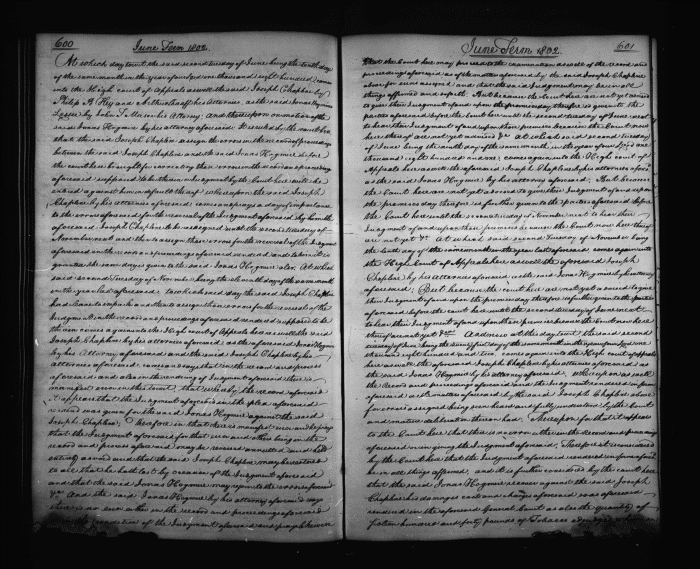 600 June Term 1802.
At which day to wit the said second tuesday of June being the tenth day
of the same month in the year of our Lord one thousand eight hundred comes
into the High court of appeals as well the said Joseph Chapline by
Philip B. Key and his attorney, as the said Jonas Hogmire
by John T. Mason his Attorney And thereupon on motion of the
said Jonas Hogmire by his attorney aforesaid It is ruled by the court here
that the said Joseph Chapline assign the errors in the record of proceedings
between the said Joseph Chapline and the said Jonas Hogmire before
the court here brought for correcting the errors in the record or proceedings
aforesaid supposed to be therein
whereupon the said Joseph
Chapline by his attorney aforesaid comes and prays a day of imparlance
to the errors aforesaid for the reversal of the Judgment aforesaid by him the
aforesaid Joseph Chapline to be assigned until the second tuesday of
November next and then to assign those errors for the reversal of the Judgment
aforesaid in the record or proceedings aforesaid and to him it is
granted the same day is given to the said Jonas Hogmire also At which
said second Tuesday of November being the eleventh day of the same month
in the year last aforesaid. the said Joseph Chapline
had leave to imparle and then to assign those errors for the reversal of the
Judgment in the record or proceedings aforesaid supposed to be
therein comes again into the High court of Appeals here as well the said
Joseph Chapline by his attorney aforesaid as the aforesaid Jonas Hogmire
by his Attorney aforesaid and the said Joseph Chapline by his
attorney aforesaid, comes and says that in the record and process
aforesaid and also in the rendering of Judgment aforesaid there is
manifest error in this to wit, that whereas by the record aforesaid
it appears that the Judgment aforesaid in the plea aforesaid
rendered was given for the said Jonas Hogmire against the said
Joseph Chapline; Therefore in that there is manifest error and he prays
that the Judgment aforesaid for that error and others being in the
record and process aforesaid may be reversed annulled and held
entirely as void and that the said Joseph Chapline may be restored
to all that he hath lost by occasion of the Judgment aforesaid
and that the said Jonas Hogmire may rejoin to the errors aforesaid
&c. And the said Jonas Hogmire by his attorney aforesaid says
there is no error either in the record and proceedings aforesaid
the rendition of the Judgment aforesaid and prays likewise
June Term 1802. 601
that the Court here may proceed to the examination as well of the record and
proceedings aforesaid as of the matters aforesaid by the said Joseph Chapline
above for error assigned; and that the said Judgment may be in all
things affirmed and so forth. But because the Court here are not yet advised
to give their Judgment of and upon the premises day therefore is given to the
parties aforesaid before the Court here until the second tuesday of June next
to hear their Judgment of and upon their premises because the Court now
here thereof are not yet advised &c. At which said second tuesday
of June being the ninth day of the same month in the year of our Lord one
thousand eight hundred and one; comes again into the High court of
Appeals here as well the aforesaid Joseph Chapline by his attorney aforesaid
as the said Jonas Hogmire by his attorney aforesaid; But because
the Court here are not yet advised to give their Judgment of and upon
the premises day therefore is further given to the parties aforesaid before
the Court here until the second tuesday of November next to hear their
Judgment of and upon their premises because the Court now here thereof
are not yet &c. At which said second Tuesday of November being
the tenth day of the same month in the year last aforesaid comes again into
the High Court of Appeals here as well the aforesaid Joseph
Chapline by his attorney aforesaid as the said Jonas Hogmire by his attorney
aforesaid; But because the court here are not yet advised to give
their Judgment of and upon the premises day therefore is further given to the parties
aforesaid before the court here until the second tuesday of June next
to hear their Judgment of and upon their premises because the Court now here
thereof are not yet &c. And here at this day to wit the said second
tuesday of June being the day of the same month in the year of our Lord one
thousand eight hundred and two, comes again into the High court of appeals
here as well the aforesaid Joseph Chapline by his attorney aforesaid as
the said Jonas Hogmire by his attorney aforesaid, Whereupon as well
the Record and proceedings aforesaid and the Judgment rendered in form
aforesaid as the matters aforesaid by the said Joseph Chapline above
for errors assigned being seen heard and fully understood by the court
and mature deliberation thereon had. Whereupon for that it appears
to the Court here that there is no error either in the record and proceedings
aforesaid or in giving the Judgment aforesaid. Therefore it is considered
by the Court here that the Judgment aforesaid rendered in form aforesaid
be in all things affirmed, and it is further considered by the court here
that the said Jonas Hogmire recover against the said Joseph
Chapline his damages costs and charges aforesaid as aforesaid
rendered in the aforesaid General Court as also the quantity of
fifteen hundred and forty pounds of Tobacco adjudged